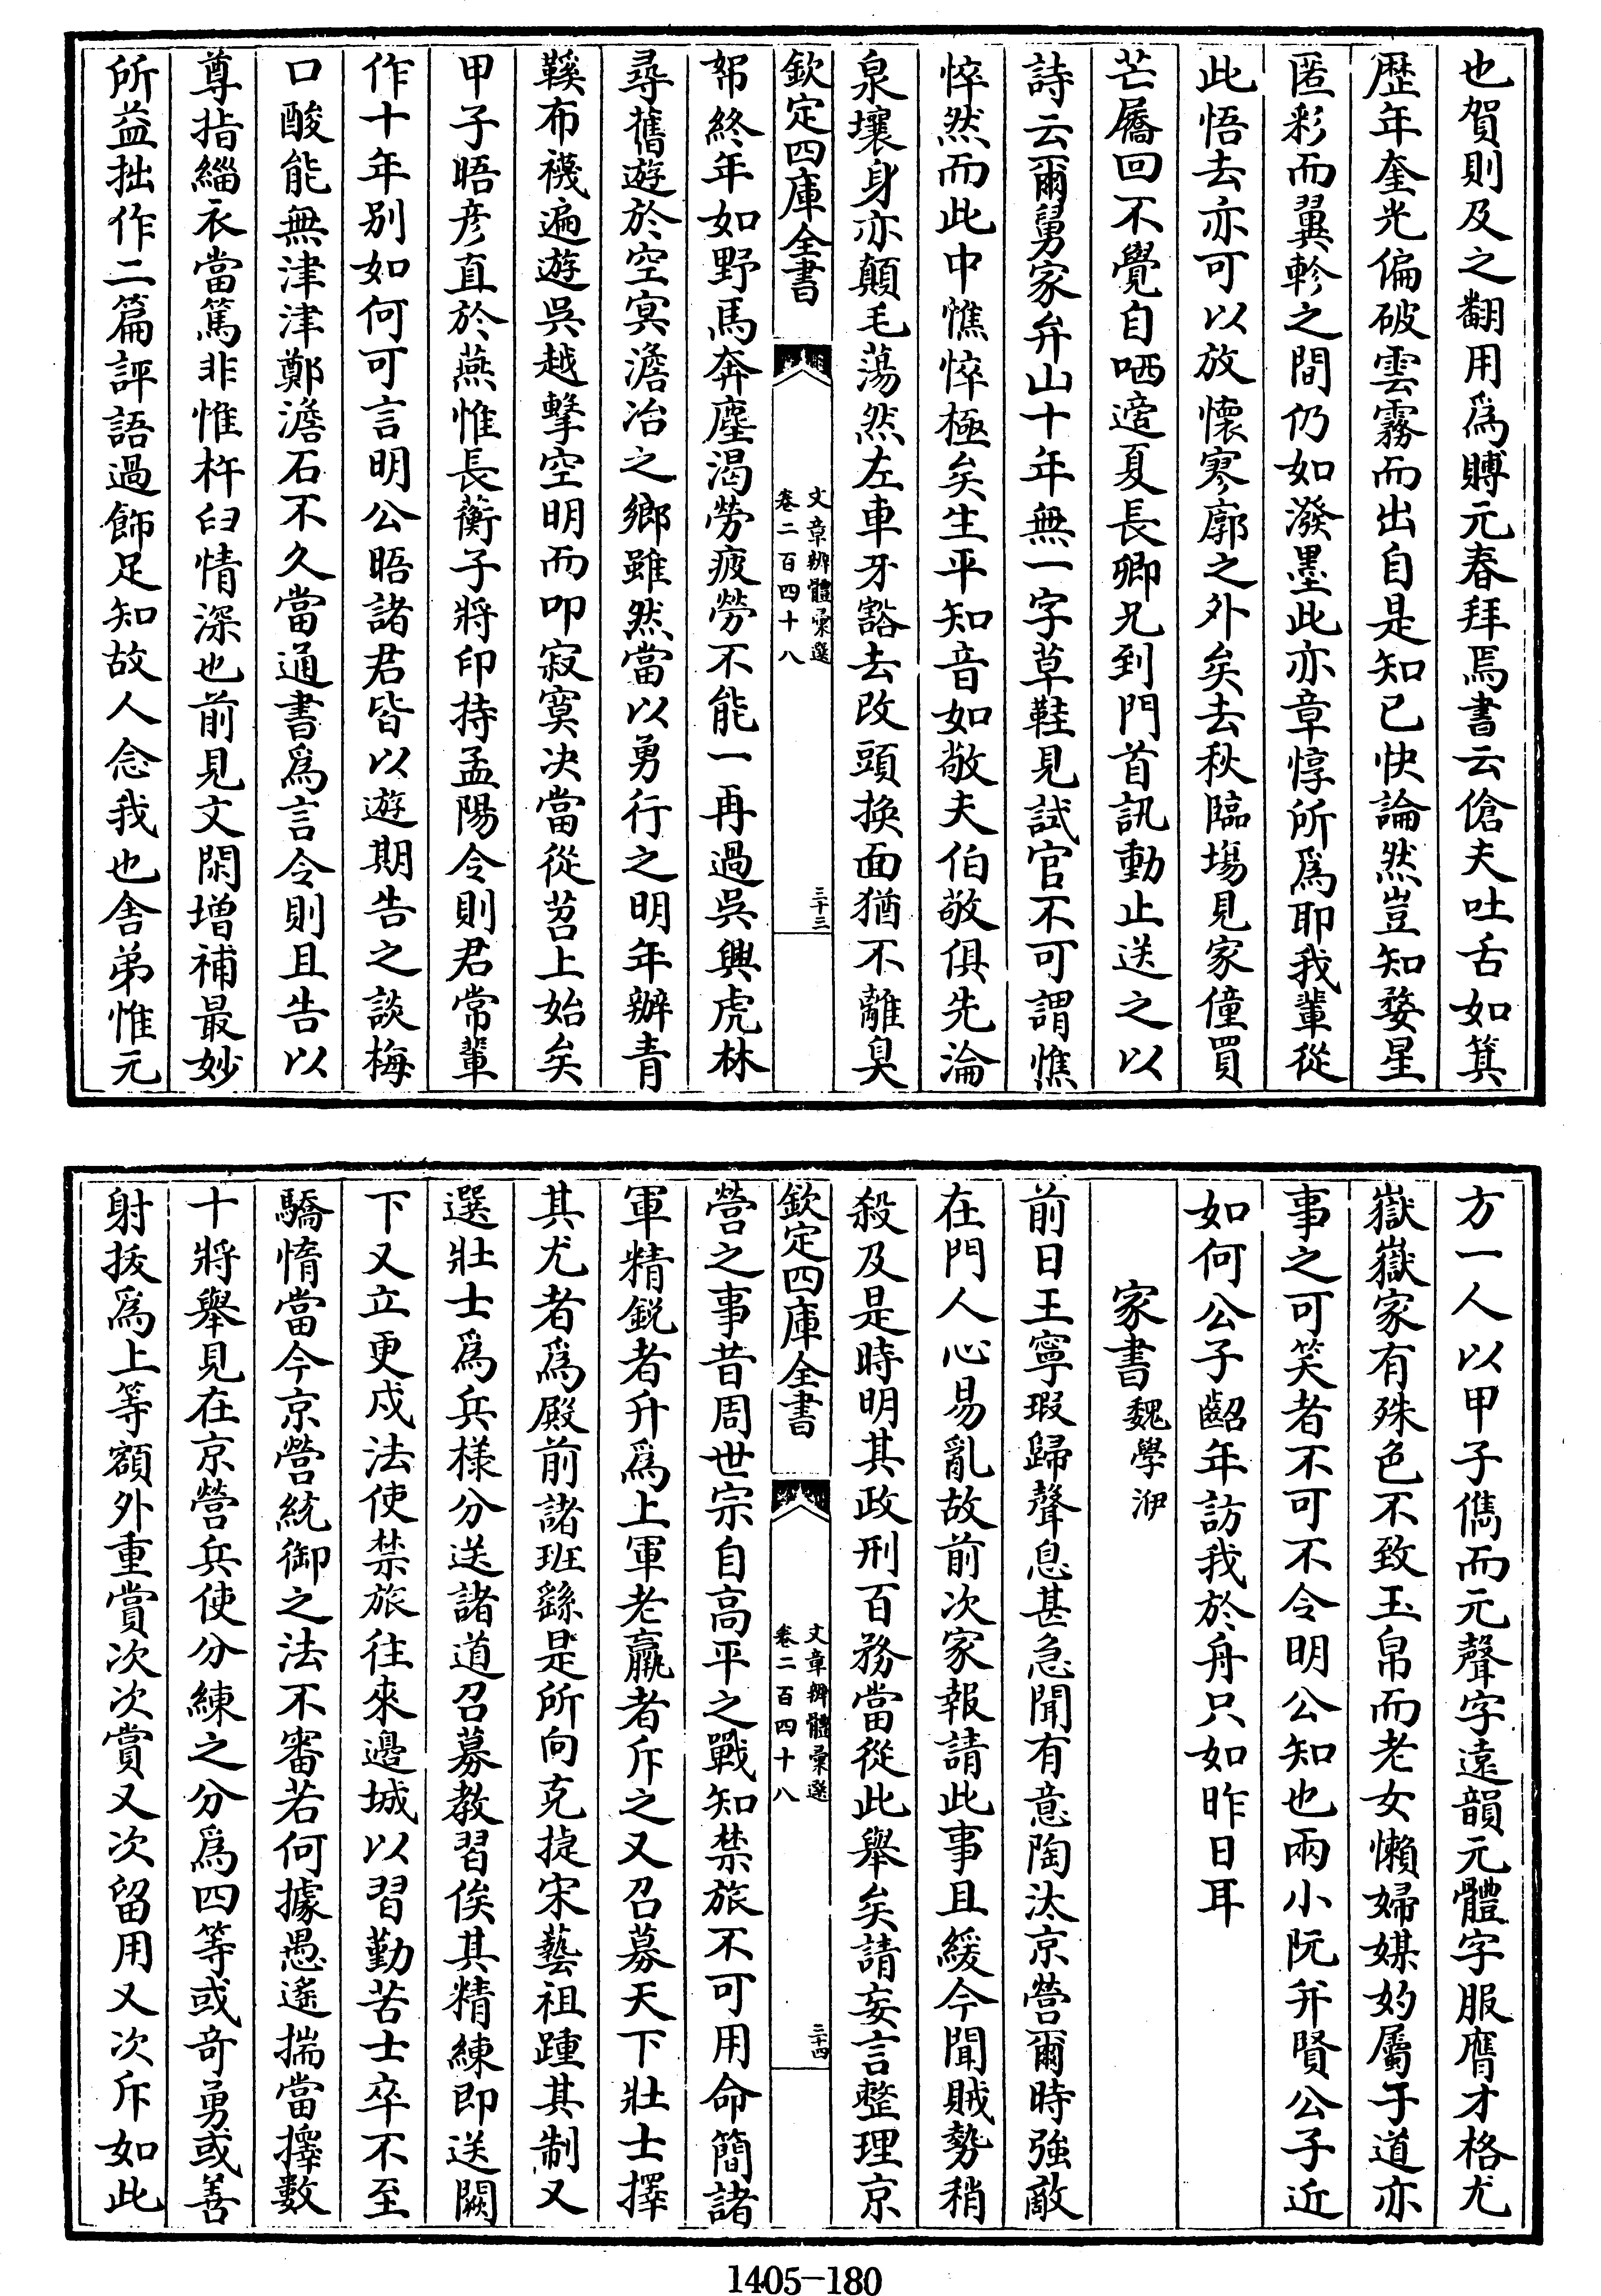 也賀則及之翻用爲賻元春拜焉書云傖夫吐舌如箕
歷年奎光偏破雲霧而出自是知已快論然豈知婺星
匿彩而翼軫之間仍如潑墨此亦章惇所爲耶我輩從
此悟去亦可以放懷寥廓之外矣去秋臨塲見家僮買
芒屩回不覺自哂適夏長卿兄到門首訊動止送之以
詩云爾舅家弁山十年無一字草鞋見試官不可謂憔
悴然而此中憔悴極矣生平知音如敬夫伯敬俱先淪
泉壤身亦顛毛蕩然左車牙豁去改頭換面猶不離臭
欽定四庫全書
文章辨體彙選
卷二百四十八
三十三
帤終年如野馬奔塵渴勞疲勞不能一再過吳興虎林
尋舊遊於空㝠澹冶之鄉雖然當以勇行之明年辦青
鞵布襪遍遊吳越擊空明而叩寂寞决當從苕上始矣
甲子晤彦直於燕惟長蘅子將印持孟陽令則君常輩
作十年别如何可言明公晤諸君皆以遊期告之談梅
口酸能無津津鄭澹石不久當通書爲言令則且告以
尊指緇衣當篤非惟杵臼情深也前見文閑增補最妙
所益拙作二篇評語過飾足知故人念我也舍弟惟元
方一人以甲子儁而元聲字遠韻元體字服膺才格尤
嶽嶽家有殊色不致玉帛而老女懶婦媒妁屬于道亦
事之可笑者不可不令明公知也兩小阮幷賢公子近
如何公子齠年訪我於舟只如昨日耳
家書 魏學洢
前日王寧瑕歸聲息甚急聞有意陶汰京營爾時強敵
在門人心易亂故前次家報請此事且緩今聞賊勢稍
殺及是時明其政刑百務當從此舉矣請妄言整理京
欽定四庫全書
文章辨體彙選
卷二百四十八
三十四
營之事昔周世宗自高平之戰知禁旅不可用命簡諸
軍精鋭者升爲上軍老羸者斥之又召募天下壯士擇
其尤者爲殿前諸班繇是所向克捷宋藝祖踵其制又
選壯士爲兵様分送諸道召募教習俟其精練即送闕
下又立更戍法使禁旅往來邊城以習勤苦士卒不至
驕惰當今京營統御之法不審若何據愚遙揣當擇數
十將舉見在京營兵使分練之分爲四等或竒勇或善
射拔爲上等額外重賞次次賞又次留用又次斥如此
1405-180